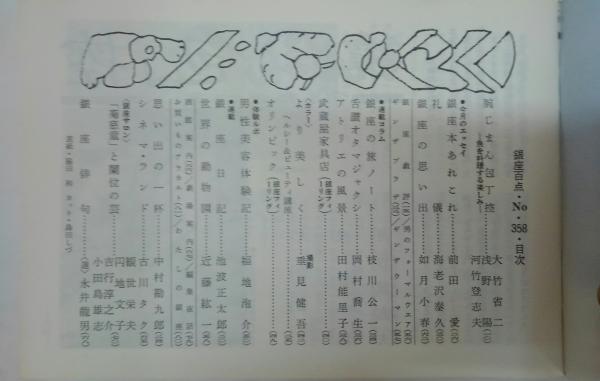 銀座百点・No・358・目次
腕じまん包丁控
―魚を料理する楽しみ―
大竹省二
浅野陽
河竹登志夫
●今月のエッセイ
銀座本あれこれ 前田愛
礼儀 海老沢泰久
銀座の思い出 如月小春
銀座劇評 男のフォーマルウエア
ギンザプラザ ギンザウーマン
●連載コラム
銀座の旅ノート 枝川公一
舌讃オタマジャクシ 岡村喬生
アトリエの風景 田村能里子
武蔵屋家具店
〈カラー〉
より美しく 撮影 垂見健吾
ヘルシー&ビューティ講座
オリンピック
●体験ルポ
男性美容体験記 福地泡介
●連載
銀座日記 池波正太郎
世界の動物園 近藤紘一
銀座案内 劇場案内 編集後記
お買いものアラカルト わたしの銀座
思い出の一杯 中村勘九郎
シネマ・ランド 古川タク
〈銀座サロン〉
「菊慈童」と蘭位の芸
観世栄夫
円地文子
吉行淳之介
小田島雄志
銀座俳句 〈選〉永井龍男
表紙・脇田和 カット・森田しづ